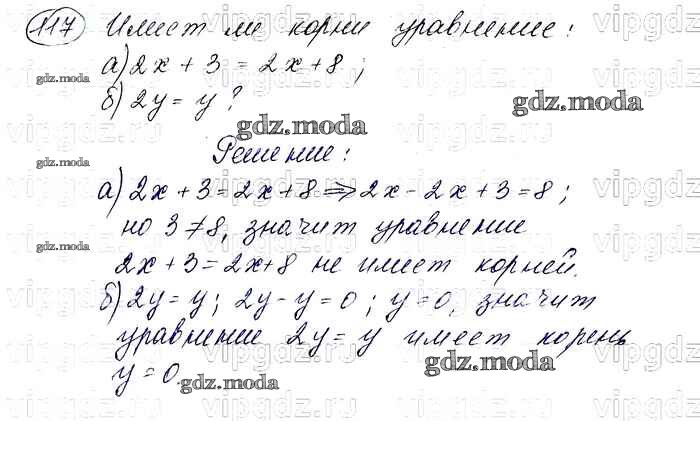 117 Имеет ли корни уравнение:
а) 2x + 3 = 2x + 8;
б) 2y = y?
Решение:
а) 2x + 3 = 2x + 8 ⇒ 2x - 2x + 3 = 8;
но 3 ≠ 8, значит уравнение
2x + 3 = 2x + 8 не имеет корней.
б) 2y = y; 2y - y = 0; y = 0, значит
уравнение 2y = y имеет корень
y = 0.
gdz.moda
gdz.moda
gdz.moda
gdz.moda
gdz.moda
gdz.moda
gdz.moda
vipgdz.ru